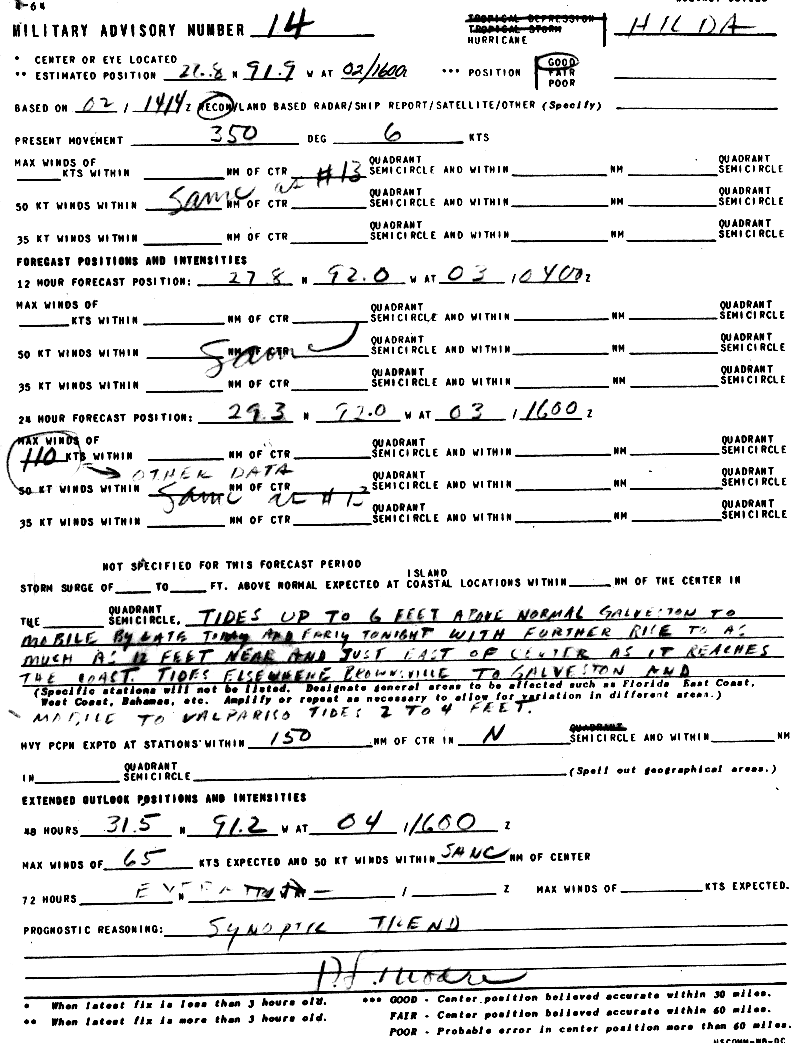 8-64
MILITARY ADVISORY NUMBER 14 TROPICAL DEPRESSION TROPICAL STORM HURRICANE HILDA
* CENTER OR EYE LOCATED
** ESTIMATED POSITION N 91.9 W AT 02/1600 *** POSITION GOOD FAIR POOR
BASED ON 02 / 1414 Z RECON/LAND BASED RADAR/SHIP REPORT/SATELLITE/OTHER (Specify)
PRESENT MOVEMENT 350 DEG 6 KTS
MAX WINDS OF QUADRANT QUADRANT
KTS WITHIN NM OF CTR SEMICIRCLE AND WITHIN NM SEMICIRCLE
Same as #13
50 KT WINDS WITHIN NM OF CTR QUADRANT SEMICIRCLE AND WITHIN NM QUADRANT SEMICIRCLE
35 KT WINDS WITHIN NM OF CTR QUADRANT SEMICIRCLE AND WITHIN NM QUADRANT SEMICIRCLE
FORECAST POSITIONS AND INTENSITIES
12 HOUR FORECAST POSITION: 27.8 N 92.0 W AT 03 / 0400 Z
MAX WINDS OF QUADRANT QUADRANT
KTS WITHIN NM OF CTR SEMICIRCLE AND WITHIN NM SEMICIRCLE
50 KT WINDS WITHIN Same NM OF CTR QUADRANT SEMICIRCLE AND WITHIN NM QUADRANT SEMICIRCLE
35 KT WINDS WITHIN NM OF CTR QUADRANT SEMICIRCLE AND WITHIN NM QUADRANT SEMICIRCLE
24 HOUR FORECAST POSITION: 29.3 N 92.0 W AT 03 / 1600 Z
MAX WINDS OF QUADRANT QUADRANT
110 KTS WITHIN NM OF CTR SEMICIRCLE AND WITHIN NM SEMICIRCLE
OTHER DATA
50 KT WINDS WITHIN NM OF CTR QUADRANT SEMICIRCLE AND WITHIN NM QUADRANT SEMICIRCLE
Same as #13
35 KT WINDS WITHIN NM OF CTR QUADRANT SEMICIRCLE AND WITHIN NM QUADRANT SEMICIRCLE
NOT SPECIFIED FOR THIS FORECAST PERIOD
ISLAND
STORM SURGE OF TO FT. ABOVE NORMAL EXPECTED AT COASTAL LOCATIONS WITHIN NM OF THE CENTER IN
THE QUADRANT SEMICIRCLE, TIDES UP TO 6 FEET ABOVE NORMAL GALVESTON TO
MOBILE BY LATE TODAY AND EARLY TONIGHT WITH FURTHER RISE TO AS
MUCH AS 12 FEET NEAR AND JUST EAST OF CENTER AS IT REACHES
THE COAST. TIDES ELSEWHERE BROWNSVILLE TO GALVESTON AND
(Specific stations will not be listed. Designate general areas to be affected such as Florida East Coast,
West Coast, Bahamas, etc. Amplify or repeat as necessary to allow for variation in different areas.)
MOBILE TO VALPARISO TIDES 2 TO 4 FEET.
HVY PCPN EXPTD AT STATIONS WITHIN 150 NM OF CTR IN N QUADRANT SEMICIRCLE AND WITHIN NM
IN QUADRANT SEMICIRCLE (Spell out geographical areas.)
EXTENDED OUTLOOK POSITIONS AND INTENSITIES
48 HOURS 31.5 N 91.2 W AT 04 / 1600 Z
MAX WINDS OF 65 KTS EXPECTED AND 50 KT WINDS WITHIN NM OF CENTER
72 HOURS N / Z MAX WINDS OF KTS EXPECTED.
PROGNOSTIC REASONING: SYNOPTIC TREND
* When latest fix is less than 3 hours old. *** GOOD - Center position believed accurate within 30 miles.
** When latest fix is more than 3 hours. FAIR - Center position believed accurate within 60 miles.
POOR - Probable error in center position more than 60 miles.